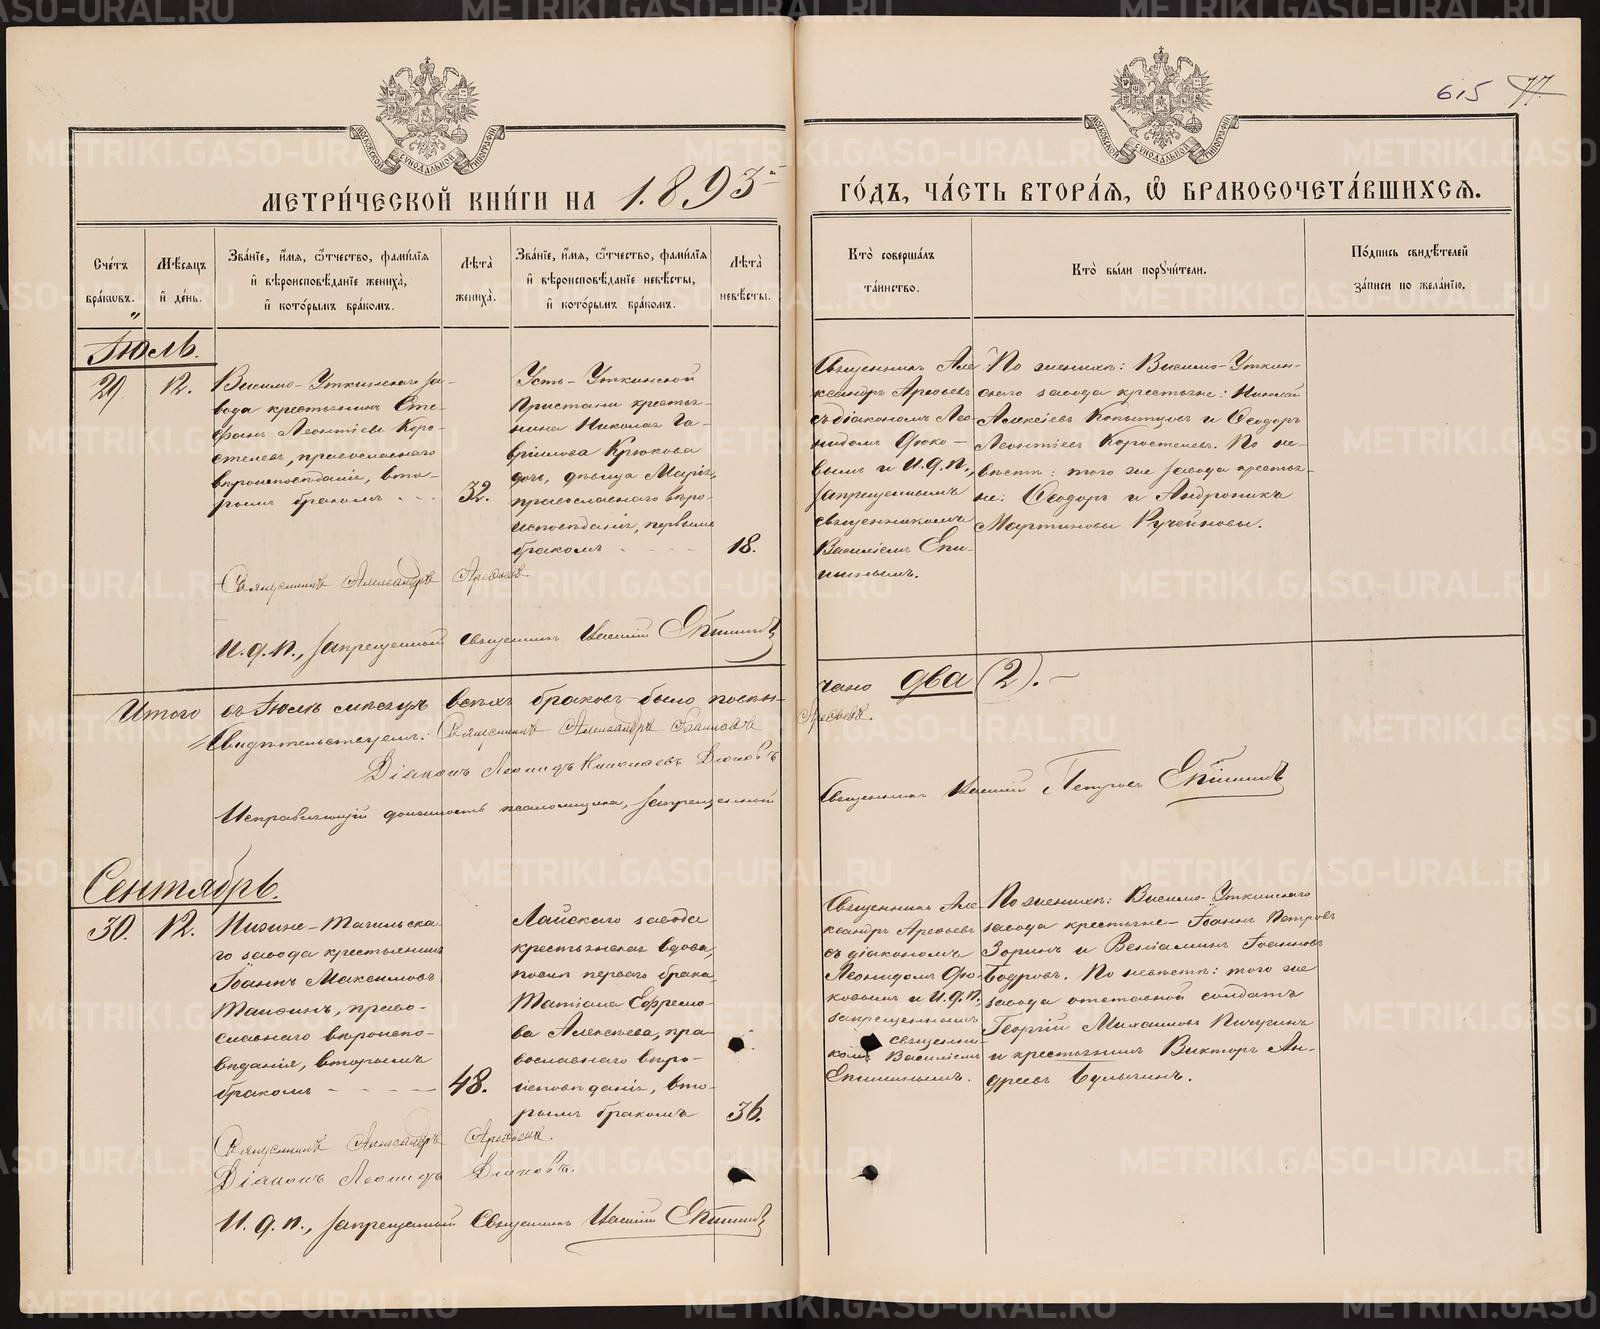 615 77
МЕТРИ́ЧЕСКОЙ КНИ́ГИ НА 1893 г.
ГО́ДЪ, ЧА́СТЬ ВТОРА́Я, Ѿ БРАКОСОЧЕТА́ВШИХСЯ.
МОСКОВСКОЙ СѴНОДАЛЬНОЙ ТИПОГРАФІИ
МОСКОВСКОЙ СѴНОДАЛЬНОЙ ТИПОГРАФІИ
Сче́тъ бра́кѡвъ.
Мѣ́сяцъ и҆ де́нь.
Зва́нїе, и҆́мя, ѻ҆́тчество, фамѝлїя
и҆ вѣроисповѣ́данїе жениха̀,
и҆ кото́рымъ бра́комъ.
Лѣта̀
жениха̀.
Зва́нїе, и҆́мя, ѻ҆́тчество, фамѝлїя
и҆ вѣроисповѣ́данїе невѣ́сты,
и҆ кото́рымъ бра́комъ.
Лѣта̀
невѣ́сты.
Кто̀ соверша́лъ
та́инство.
Кто̀ бы́ли порꙋчи́тели.
По́дпись свидѣ́телей
за́писи по жела́нїю.
Іюль.
29. 12.
Висимо-Уткинскаго за-
вода крестьянинъ Сте-
фанъ Леонтіевъ Коро-
стелевъ, православнаго
вѣроисповѣданія, вто-
рымъ бракомъ
32.
Усть-Уткинской
Пристани крестья-
нина Николая Га-
вріилова Крюкова
дочь, дѣвица Марія,
православнаго вѣро-
исповѣданія, первымъ
бракомъ
18.
Священникъ Але-
ксандръ Арефьевъ
съ діакономъ Лео-
нидомъ Дюко-
вымъ и И.д.п.,
запрещеннымъ
священникомъ
Василіемъ Епи-
шинымъ.
По женихѣ: Висимо-Уткин-
скаго завода крестьяне: Николай
Алексіевъ Копытовъ и Ѳеодоръ
Леонтіевъ Коростелевъ. По не-
вѣстѣ: того же завода крестья-
не: Ѳеодоръ и Андроникъ
Мартиновы Ручейновы.
Священникъ Александръ Арефьевъ
И.д.п., запрещенный священникъ Василій Епишинъ
Итого въ Іюлѣ мѣсяцѣ всѣхъ браковъ было повѣн-
чано два (2).
Свидѣтельствуемъ: Священникъ Александръ Іоанновъ
Арефьевъ.
Діаконъ Леонидъ Николаевъ Дюковъ
Исправляющій должность псаломщика, запрещенный
Священникъ Василій Петровъ Епишинъ
Сентябрь.
30. 12.
Нижне-Тагильска-
го завода крестьянинъ
Іоаннъ Максимовъ
православнаго вѣроиспо-
вѣданія, вторымъ
бракомъ
48.
Лайскаго завода
крестьянская вдова,
послѣ перваго брака,
Татіана Ефремо-
ва Алексѣева, пра-
вославнаго вѣро-
исповѣданія, вто-
рымъ бракомъ
36.
Священникъ Але-
ксандръ Арефьевъ
съ діакономъ
Леонидомъ Дю-
ковымъ и И.д.п.,
запрещеннымъ
священни-
комъ Василіемъ
Епишинымъ.
По женихѣ: Висимо-Уткинскаго
завода крестьяне - Іоаннъ Петровъ
Зоринъ и Веніаминъ Іоанновъ
Бодровъ. По невѣстѣ: того же
завода отставной солдатъ
Георгій Михаиловъ Пичугинъ
и крестьянинъ Викторъ Ан-
дреевъ Булыгинъ.
Священникъ Александръ Арефьевъ.
Діаконъ Леонидъ Дюковъ.
И.д.п., запрещенный Священникъ Василій Епишинъ
METRIKI.GASO-URAL.RU